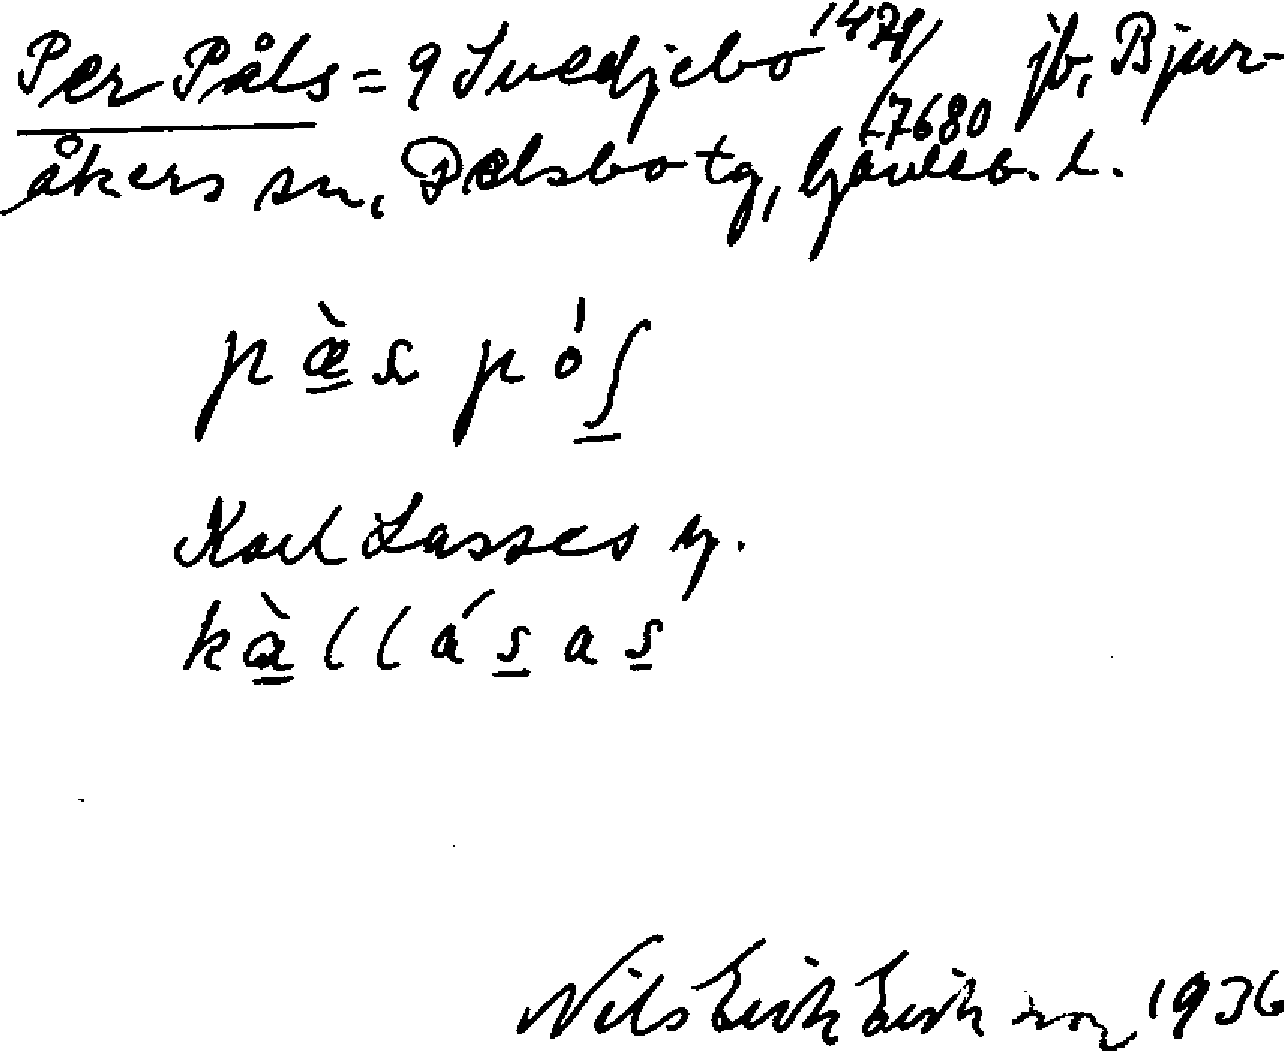 Per Påls = 9 Svedjebo 1479/17680 jb, Bjur-
åkers sn, Delsbo tg, Gävleb. l.
pæ̀ʀ pó ʃ
Karl Lasses g.
kàllásas
Nils Erik Erikson 1936